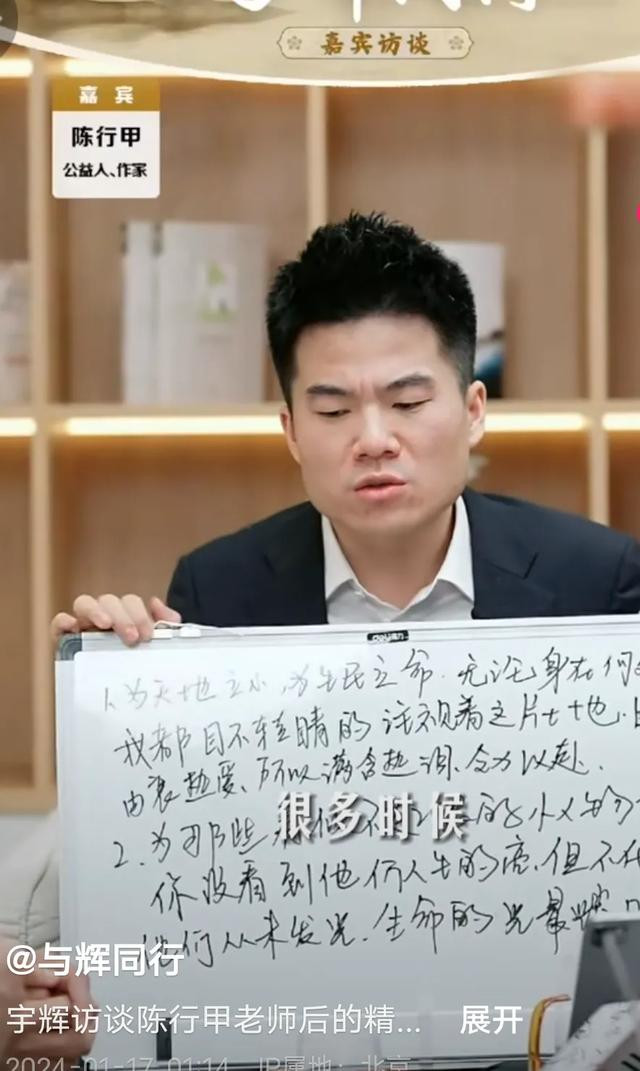 嘉宾访谈
嘉宾
陈行甲
公益人、作家
deli得力
1.为天地立心,为生民立命.无论身在何
我都目不转睛的注视着这片土地,
由衷热爱、所以满含热泪、全力以赴.
2.为那些
的小人物
很多时候
你没看到他们人生的亮,但不代
他们从未发光.生命的光最
@与辉同行
宇辉访谈陈行甲老师后的精... 展开
2024-01-17 01:14 IP属地:北京